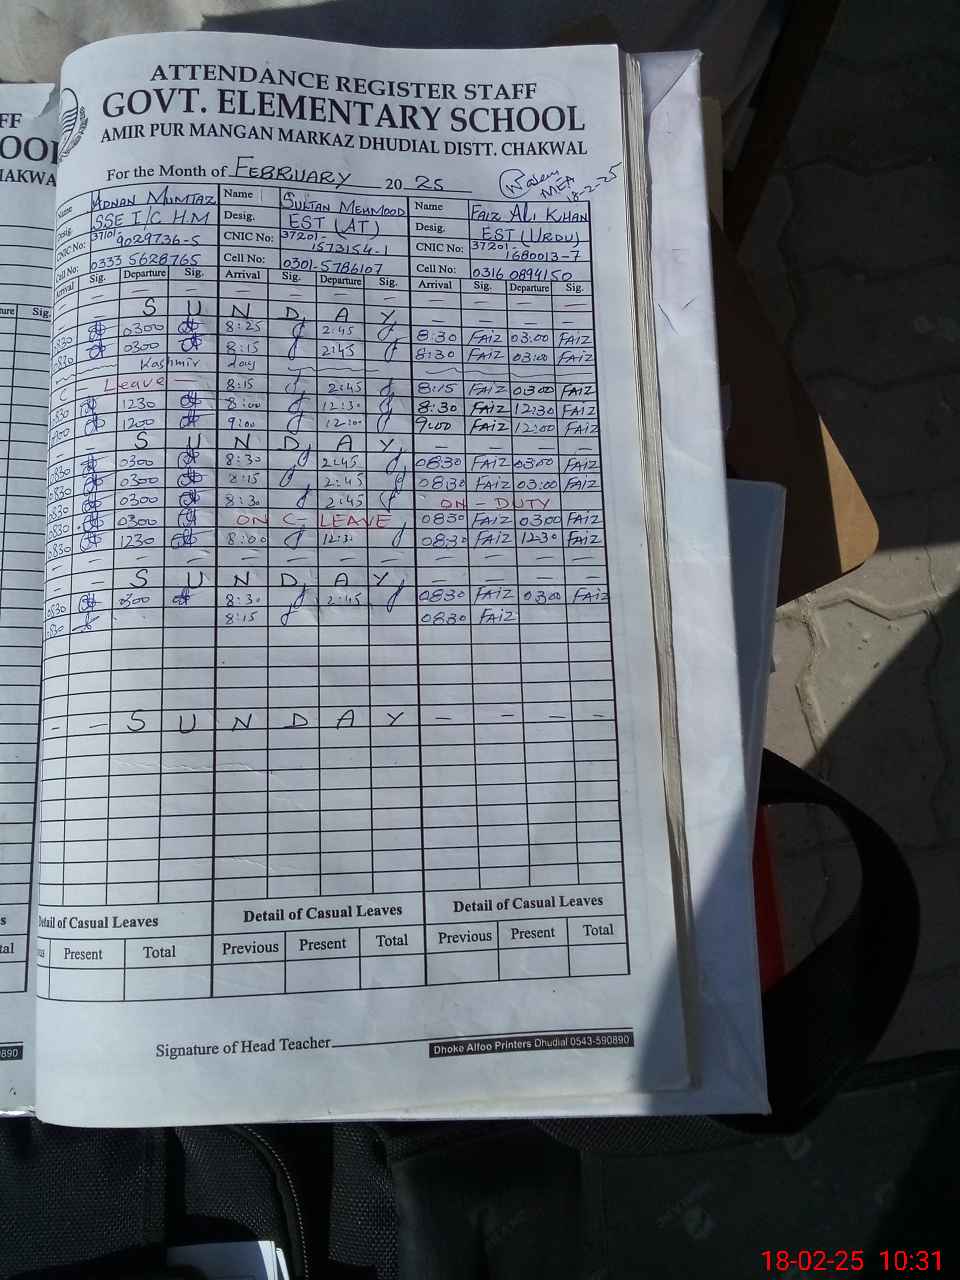 ATTENDANCE REGISTER STAFF
GOVT. ELEMENTARY SCHOOL
AMIR PUR MANGAN MARKAZ DHUDIAL DISTT. CHAKWAL
For the Month of FEBRUARY 20 25
MEA
18-2-25
Name ADNAN MUMTAZ Name SULTAN MEHMOOD Name FAIZ ALI KHAN
Desig. SSE I/C H.M Desig. EST (AT) Desig. EST (URDU)
CNIC No: 37101-9029736-5 CNIC No: 37201-1573154-1 CNIC No: 37201-1680013-7
Cell No: 0333 5628765 Cell No: 0301-5786107 Cell No: 0316 0894150
Arrival Sig. Departure Sig. Arrival Sig. Departure Sig. Arrival Sig. Departure Sig.
— — S U N D A Y — — — —
0830 0300 8:25 2:45 8:30 FAIZ 03:00 FAIZ
0830 0300 8:15 2:45 8:30 FAIZ 03:00 FAIZ
Kashmir day
C Leave — 8:15 2:45 8:15 FAIZ 0300 FAIZ
0830 1230 8:00 12:30 8:30 FAIZ 12:30 FAIZ
0900 1200 9:00 12:00 9:00 FAIZ 12:00 FAIZ
— — S U N D A Y — — — —
0830 0300 8:30 2:45 0830 FAIZ 0300 FAIZ
0830 0300 8:15 2:45 0830 FAIZ 03:00 FAIZ
0830 0300 8:30 2:45 ON - DUTY
0830 0300 ON C- LEAVE 0830 FAIZ 0300 FAIZ
0830 1230 8:00 12:30 0830 FAIZ 1230 FAIZ
— — S U N D A Y — — — —
0830 0300 8:30 2:45 0830 FAIZ 0300 FAIZ
0830 8:15 0830 FAIZ
— — S U N D A Y — — — —
Detail of Casual Leaves Detail of Casual Leaves Detail of Casual Leaves
Present Total Previous Present Total Previous Present Total
Signature of Head Teacher
Dhoke Alfoo Printers Dhudial 0543-590890
18-02-25 10:31